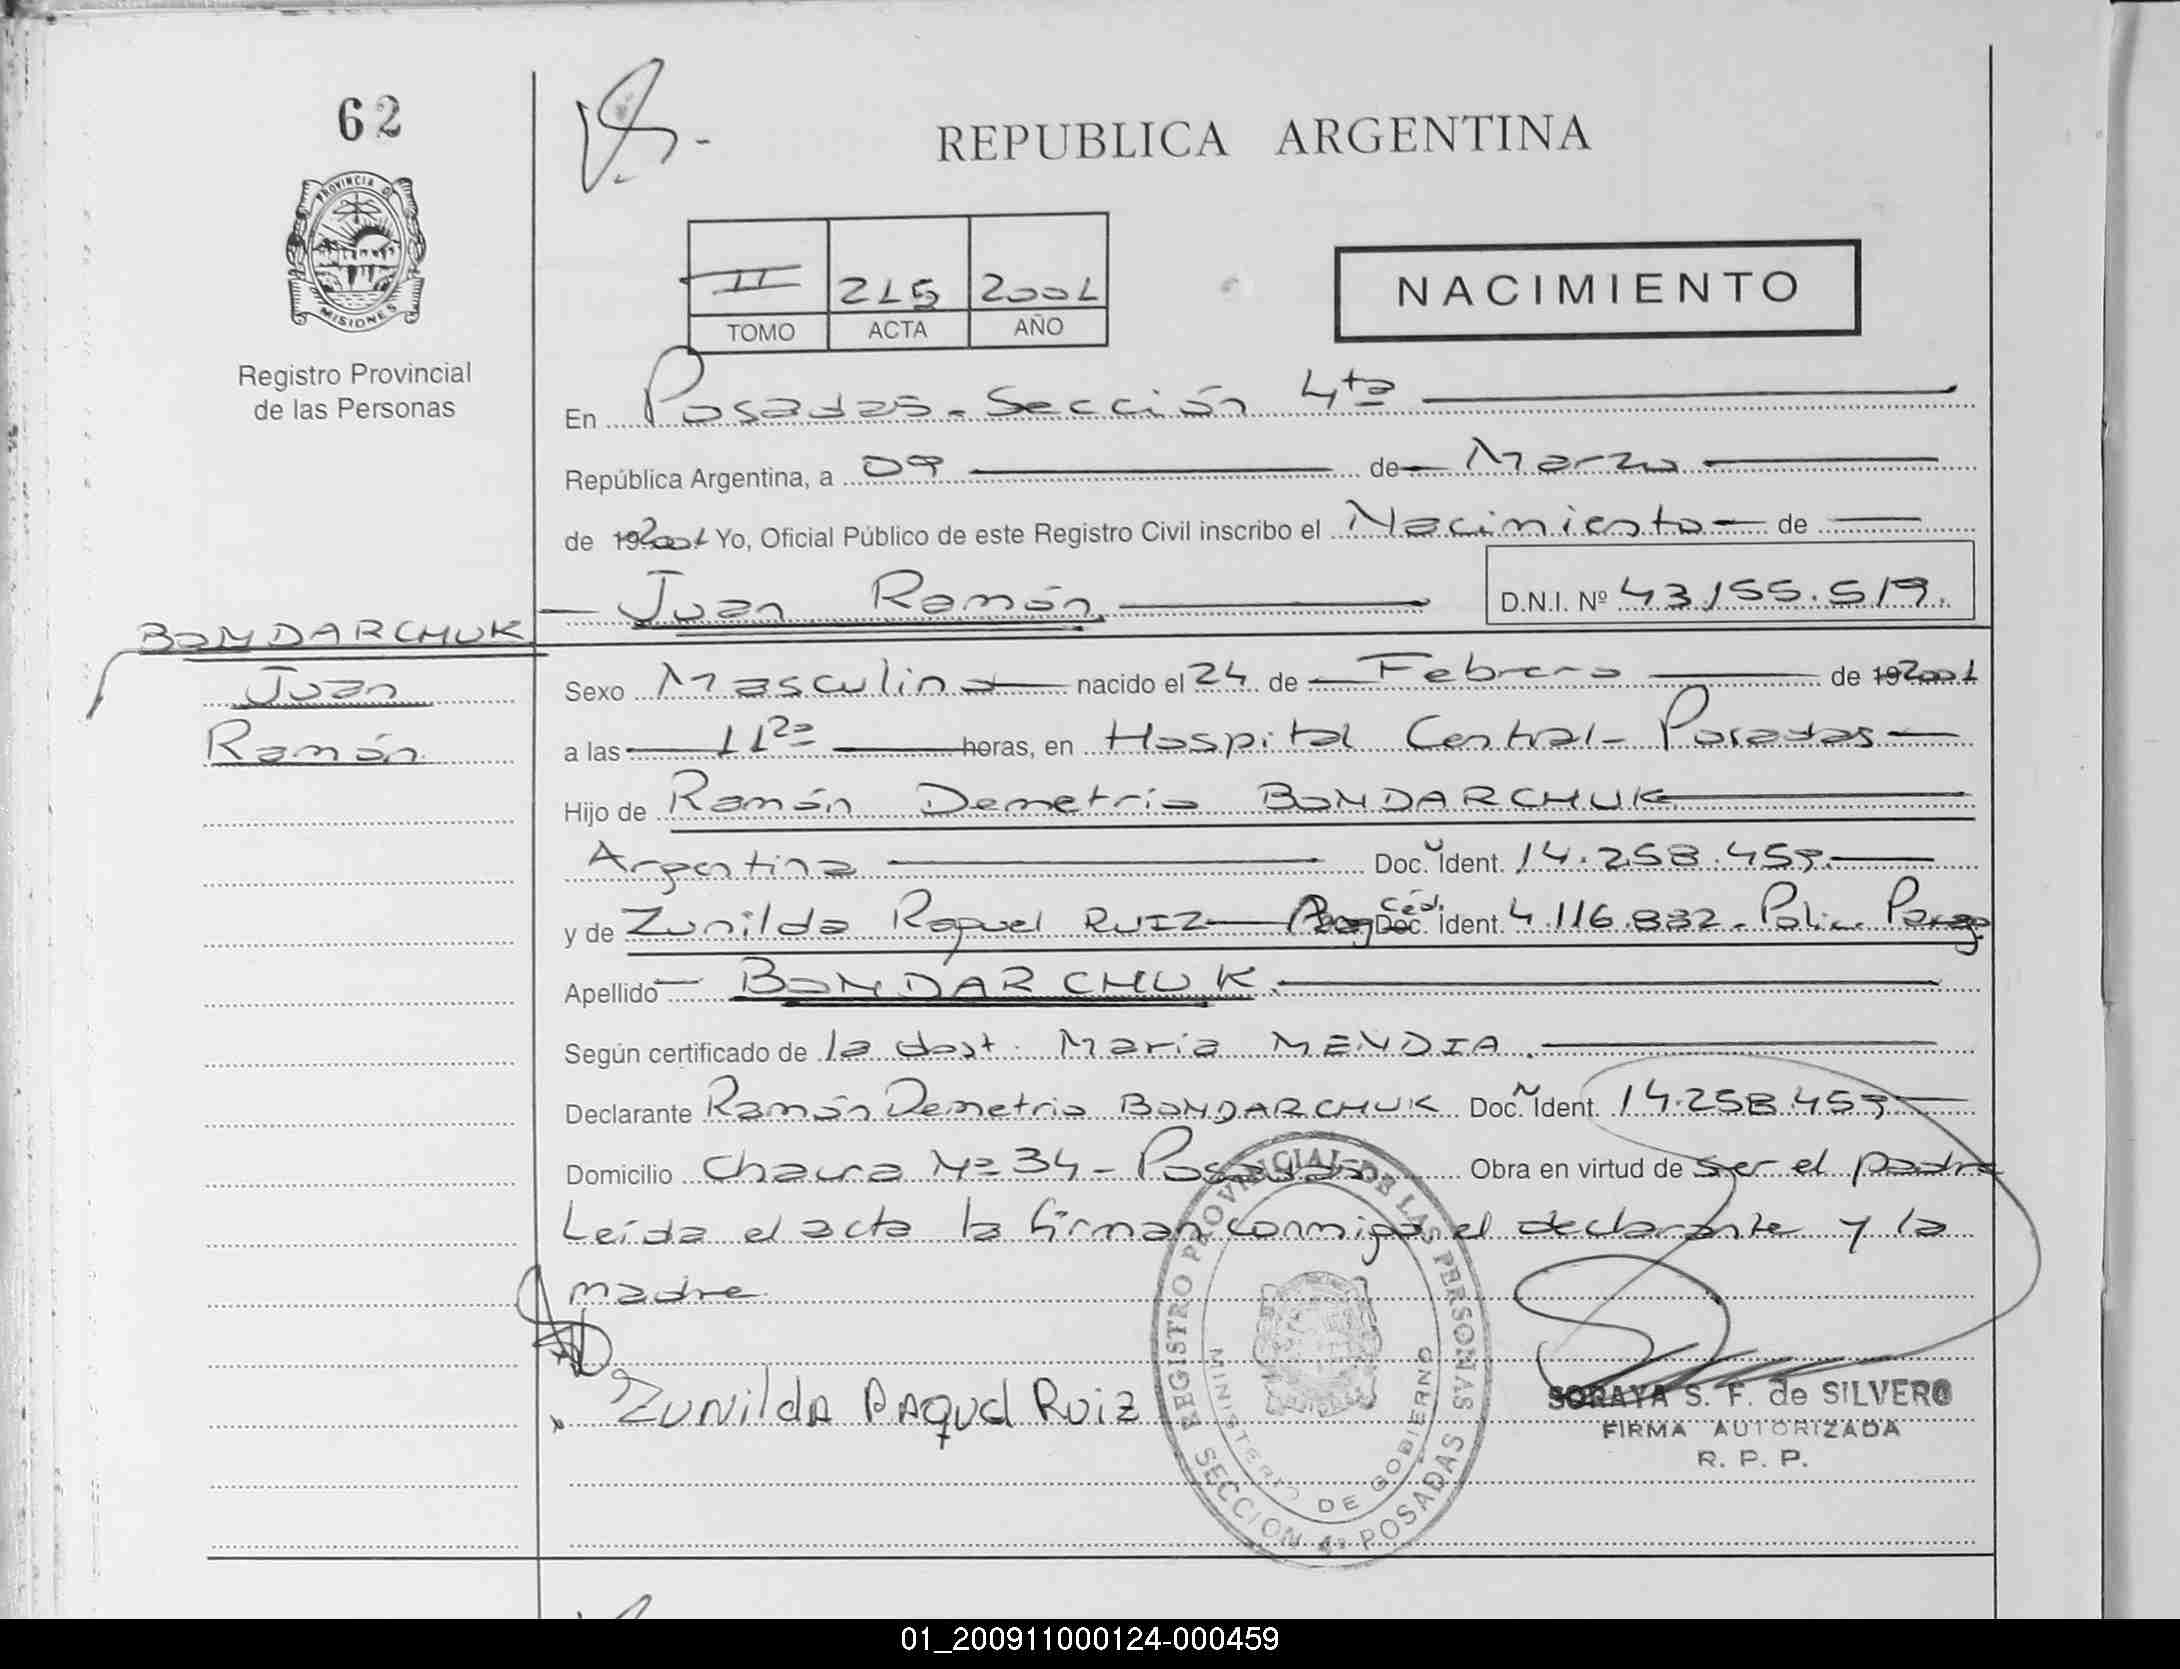 62
REPUBLICA ARGENTINA
PROVINCIA DE MISIONES
Registro Provincial
de las Personas
II 215 2001
TOMO ACTA AÑO
NACIMIENTO
En Posadas - Sección 4ta
República Argentina, a 09 de Marzo
de 19 2001 Yo, Oficial Público de este Registro Civil inscribo el Nacimiento de
Juan Ramón D.N.I. Nº 43.155.519.
BONDARCHUK
Juan
Ramón
Sexo Masculino nacido el 24 de Febrero de 19 2001
a las 11 horas, en Hospital Central - Posadas
Hijo de Ramón Demetrio BONDARCHUK
Argentina Doc. Ident. 14.258.459.
y de Zunilda Raquel RUIZ Céd. Doc. Ident. 4.116.832 -
Apellido BONDARCHUK.
Según certificado de la dost. Maria MENDIA.
Declarante Ramón Demetrio BONDARCHUK Doc. Ident. 14.258.459
Domicilio Chacra Nº 34 - Posadas Obra en virtud de ser el padre
Leída el acta la firman conmigo, el declarante y la
madre
Zunilda Raquel Ruiz
REGISTRO PROVINCIAL DE LAS PERSONAS
MINISTERIO DE GOBIERNO
SECCION 4ª POSADAS
SORAYA S. F. de SILVERO
FIRMA AUTORIZADA
R. P. P.
01_200911000124-000459